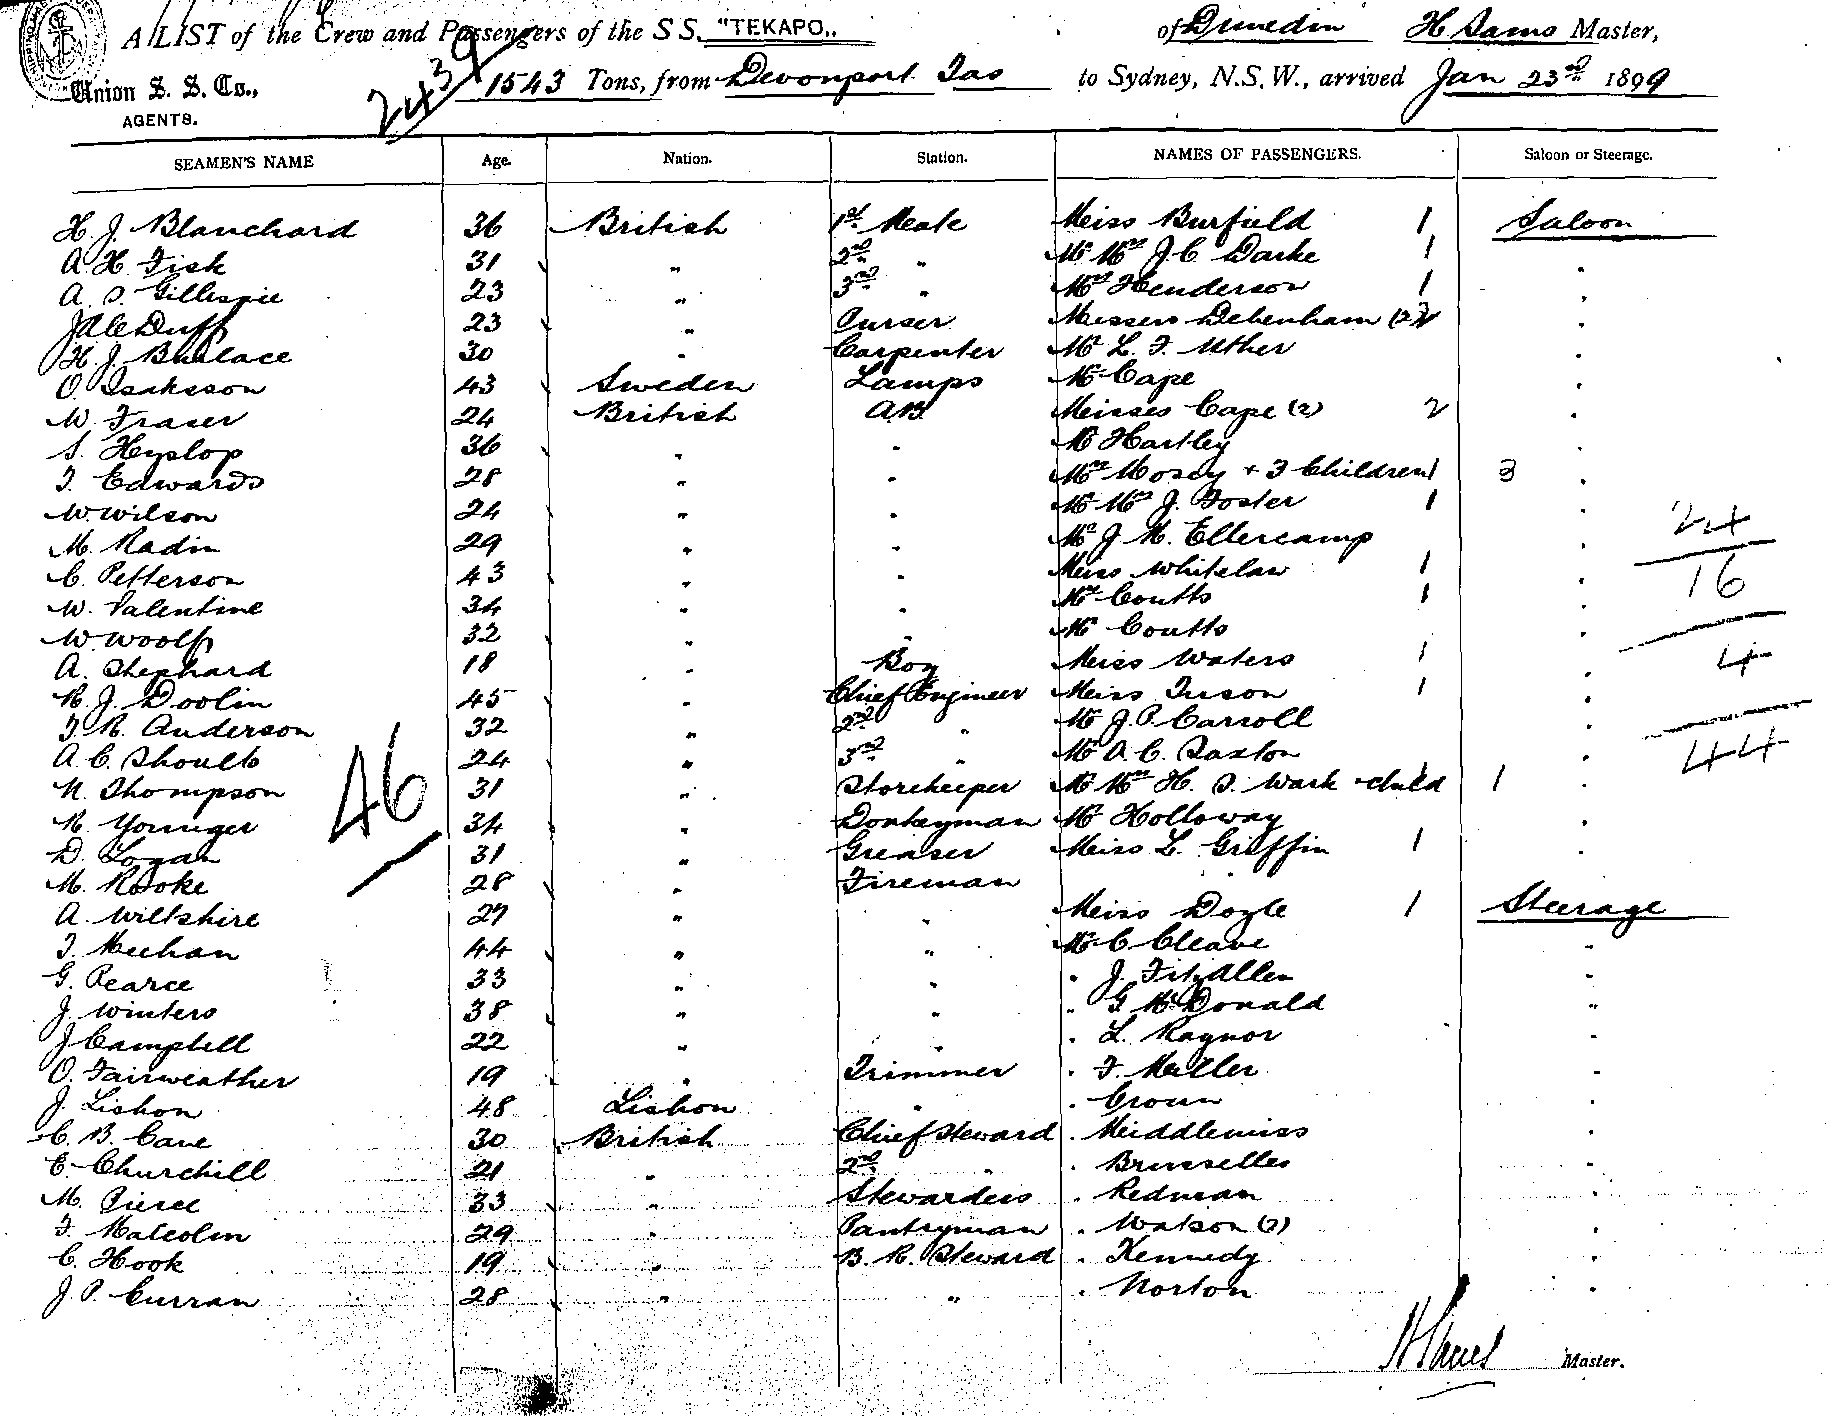 A LIST of the Crew and Passengers of the S S. "TEKAPO,, of Dunedin H Sams Master,
Union S. S. Co., AGENTS. 2439 1543 Tons, from Devonport Tas to Sydney, N.S.W., arrived Jan 23rd 1899
SEAMEN'S NAME Age. Nation. Station. NAMES OF PASSENGERS. Saloon or Steerage.
H. J. Blanchard 36 British 1st Mate Miss Burfield 1 Saloon
A. H. Fisk 31 " 2nd " Mr Mrs J. C. Darke 1 "
A. S. Gillespie 23 " 3rd " Mrs Henderson 1 "
Duff 23 " Purser Messrs Debenham (2) "
H. J. Bullace 30 " Carpenter Mr L. F. Uther "
O. Isaksson 43 Sweden Lamps Mr Cape "
W. Fraser 24 British AB Misses Cape (2) 2 "
S. Hyslop 36 " " Mr Hartley "
T. Edwards 28 " " Mrs Mosey + 3 Children 1 3 "
W. Wilson 24 " " Mr Mrs J. Foster 1 "
M. Radin 29 " " Mr J. M. Ellercamp "
C. Petterson 43 " " Miss Whitelaw 1 "
W. Valentine 34 " " Mrs Coutts 1 "
W. Woolf 32 " " Mr Coutts "
A. Shephard 18 " Boy Miss Waters 1 "
R. J. Doolin 45 " Chief Engineer Miss Tuson 1 "
T. R. Anderson 32 " 2nd " Mr J. P. Carroll "
A. C. Shoults 24 " 3rd " Mr A. C. Saxton "
N. Thompson 31 " Storekeeper Mr Mrs H. S. Wark + child 1 "
R. Younger 34 " Donkeyman Mr Holloway "
D. Logan 31 " Greaser Miss L. Griffin 1 "
M. Rooke 28 " Fireman
A. Wiltshire 27 " " Miss Doyle 1 Steerage
T. Meehan 44 " " Mr C Cleave "
G. Pearce 33 " " " J. FitzAllen "
J. Winters 38 " " " G McDonald "
J Campbell 22 " " " L. Raynor "
O. Fairweather 19 " Trimmer " F. Muller "
J. Lisbon 48 Lisbon " " Croun "
C. B. Cane 30 British Chief Steward " Middlemiss "
E. Churchill 21 " 2nd " " Brusselles "
M. Pierce 33 " Stewardess " Redman "
F. Malcolm 29 " Pantryman " Watson (?) "
C. Hook 19 " B. R. Steward " Kennedy "
J. P. Curran 28 " " " Norton "
46
24
16
4
44
H Sams Master.